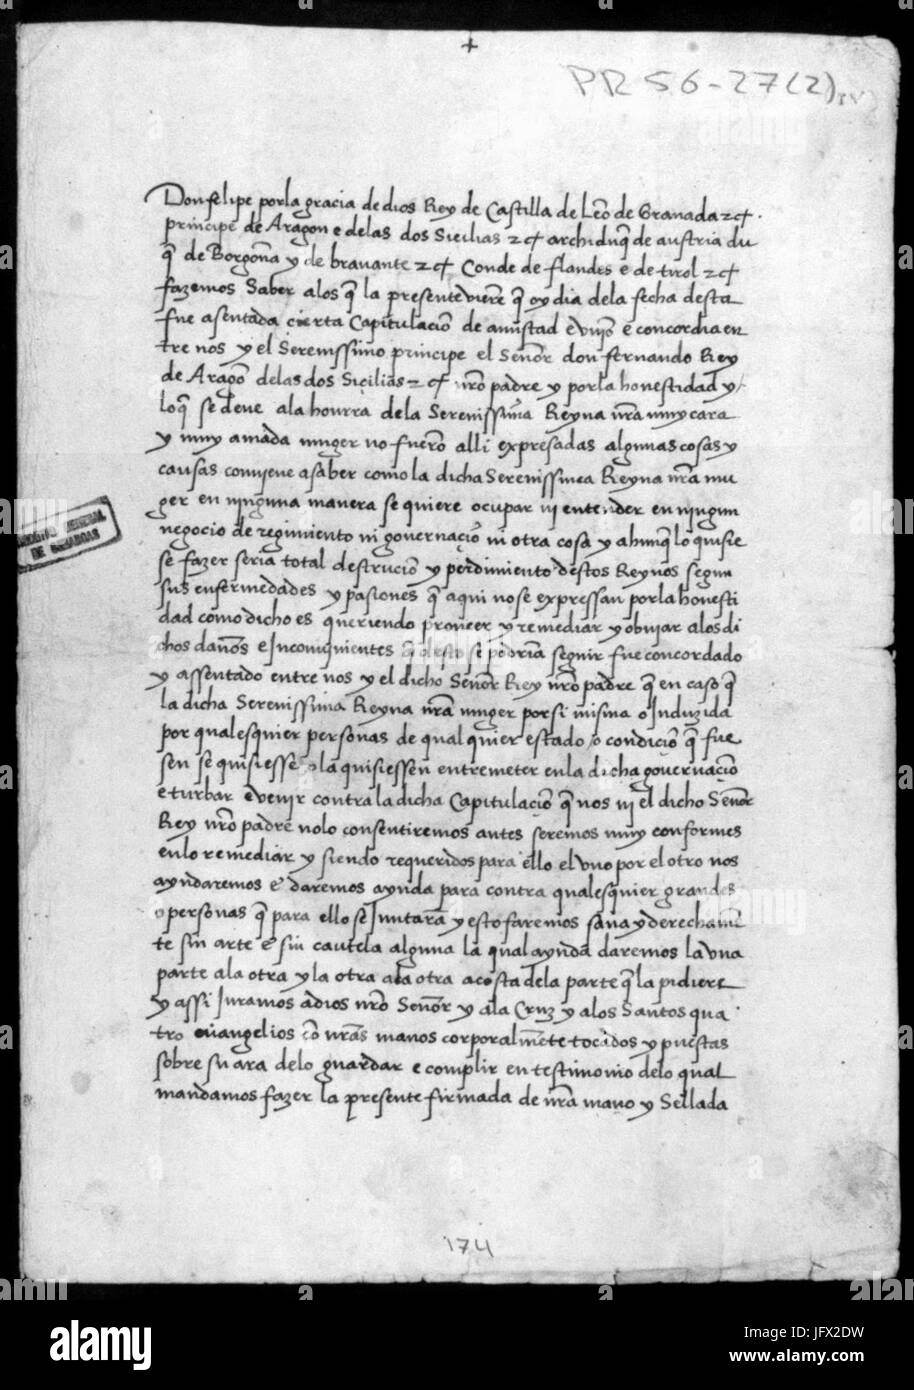 PR 56-27(2)
Don felipe por la gracia de dios Rey de Castilla de Leõ de Granada etc.
principe de Aragon e delas dos Sicilias etc archiduq̃ de austria du
q̃ de Borgoña y de bravante etc Conde de flandes e de tirol etc
fazemos saber alos q̃ la presente vierẽ q̃ oy dia dela fecha desta
fue asentada cierta Capitulaciõ de amistad e vniõ e concordia en
tre nos y el Serenissimo principe el Señor don fernando Rey
de Aragõ delas dos Siçilias etc nr̃o padre y por la honestidad y
lo q̃ se deue ala honrra dela Serenissima Reyna nr̃a muy cara
y muy amada muger no fuerõ alli expresadas algunas cosas y
causas conviene a saber como la dicha Serenissima Reyna nr̃a mu
ger en ninguna manera se quiere ocupar ni entender en ningun
negocio de regimiento ni governaçiõ ni otra cosa y ahunq̃ lo quisie
se fazer seria total destruciõ y perdimiento destos Reynos segun
sus enfermedades y pasiones q̃ aqui no se expressan por la honesti
dad como dicho es queriendo proueer y remediar y obuiar alos di
chos daños e Inconuinientes q̃ desto se podria seguir fue concordado
y assentado entre nos y el dicho Señor Rey nr̃o padre q̃ en caso q̃
la dicha Serenissima Reyna nr̃a muger por si misma o Induzida
por qualesquier personas de qualquier estado o condiçiõ q̃ fue
sen se quisiesse o la quisiessen entremeter en la dicha governaçiõ
e turbar e venir contra la dicha Capitulaçiõ q̃ nos ni el dicho Señor
Rey nr̃o padre no lo consentiremos antes seremos muy conformes
en lo remediar y siendo requeridos para ello el vno por el otro nos
ayudaremos e daremos ayuda para contra qualesquier grandes
o personas q̃ para ello se Juntarã y esto faremos sana y derechamẽ
te sin arte e sin cautela alguna la qual ayuda daremos la vna
parte ala otra y la otra ala otra a costa dela parte q̃ la pidiere
y assi Juramos a dios nr̃o Señor y ala Cruz y alos Santos qua
tro euangelios cõ nr̃as manos corporalmẽte tocados y puestas
sobre su ara delo guardar e complir en testimonio delo qual
mandamos fazer la presente firmada de nr̃a mano y Sellada
174
alamy
Image ID: JFX2DW
www.alamy.com